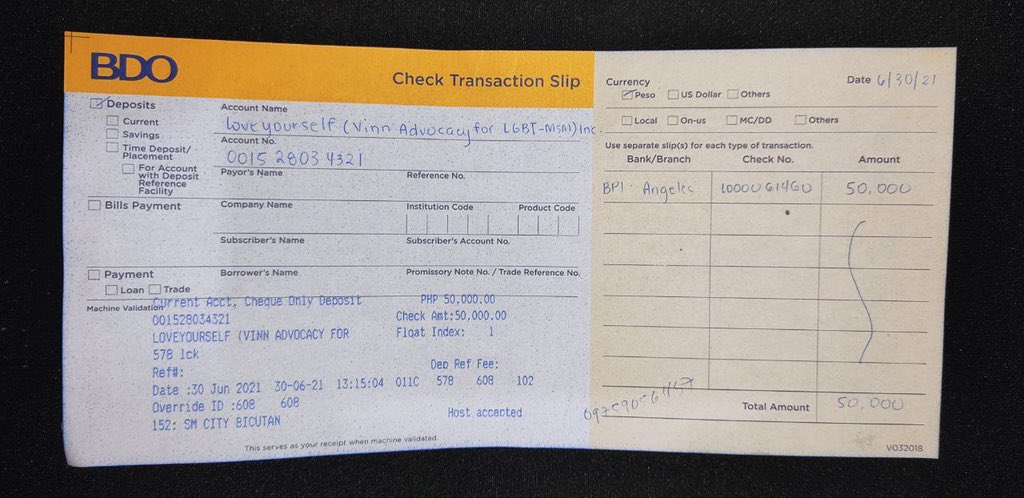 BDO
Check Transaction Slip
Deposits
Current
Savings
Time Deposit/
Placement
For Account
with Deposit
Reference
Facility
Account Name
loveyourself (Vinn Advocacy for LGBT-MSM) Inc
Account No.
0015 2803 4321
Payor's Name Reference No.
Bills Payment
Company Name Institution Code Product Code
Subscriber's Name Subscriber's Account No.
Payment
Loan Trade
Borrower's Name Promissory Note No. / Trade Reference No.
Machine Validation
Current Acct, Cheque Only Deposit PHP 50,000.00
001528034321 Check Amt:50,000.00
LOVEYOURSELF (VINN ADVOCACY FOR Float Index: 1
578 1ck
Ref#: Dep Ref Fee:
Date :30 Jun 2021 30-06-21 13:15:04 011C 578 608 102
Override ID :608 608
152: SM CITY BICUTAN Host accepted
This serves as your receipt when machine validated.
Currency Date 6/30/21
Peso US Dollar Others
Local On-us MC/DD Others
Use separate slip(s) for each type of transaction.
Bank/Branch Check No. Amount
BPI - Angeles 1000061460 50,000
Total Amount 50,000
V032018